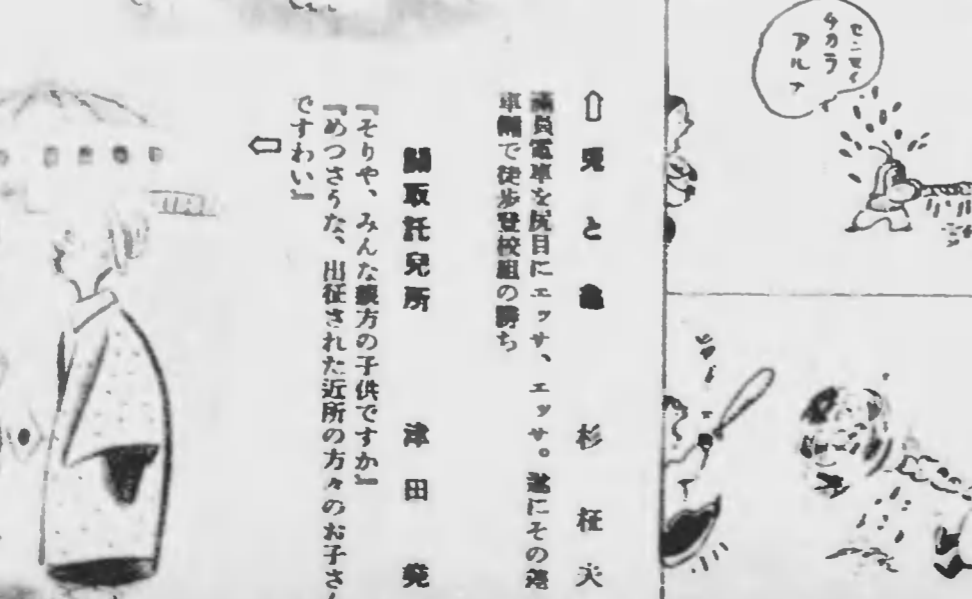 センセイ
チカラ
アルナ
⇧ 兎と亀 杉柾夫
満員電車を尻目にエッサ、エッサ。遂にその
車輛で徒歩登校組の勝ち
關取託兒所 津田
『そりや、みんな親方の子供ですか』
『めつさうな、出征された近所の方々のお子さ
ですわい』
⇦